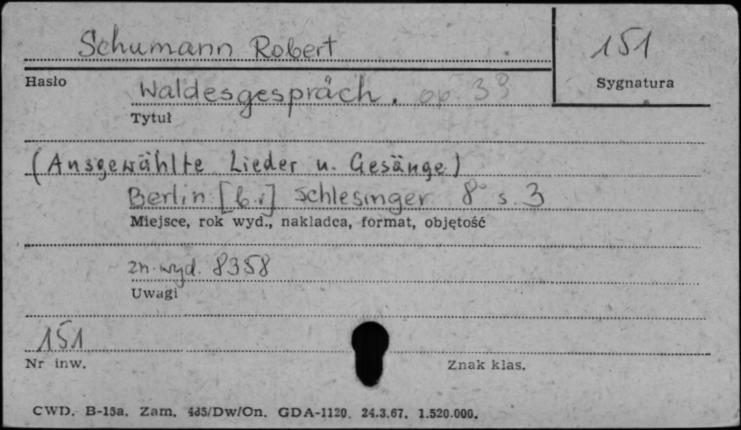 Schumann Robert
151
Hasło
Sygnatura
Waldesgespräch. op. 39
Tytuł
(Ausgewählte Lieder u. Gesänge)
Berlin [b.r.] Schlesinger 8° s. 3
Miejsce, rok wyd., nakladca, format, objętość
zn. wyd. 8358
Uwagi
151
Nr inw.
Znak klas.
CWD. B-15a. Zam. 485/Dw/On. GDA-1120. 24.3.67. 1.520.000.